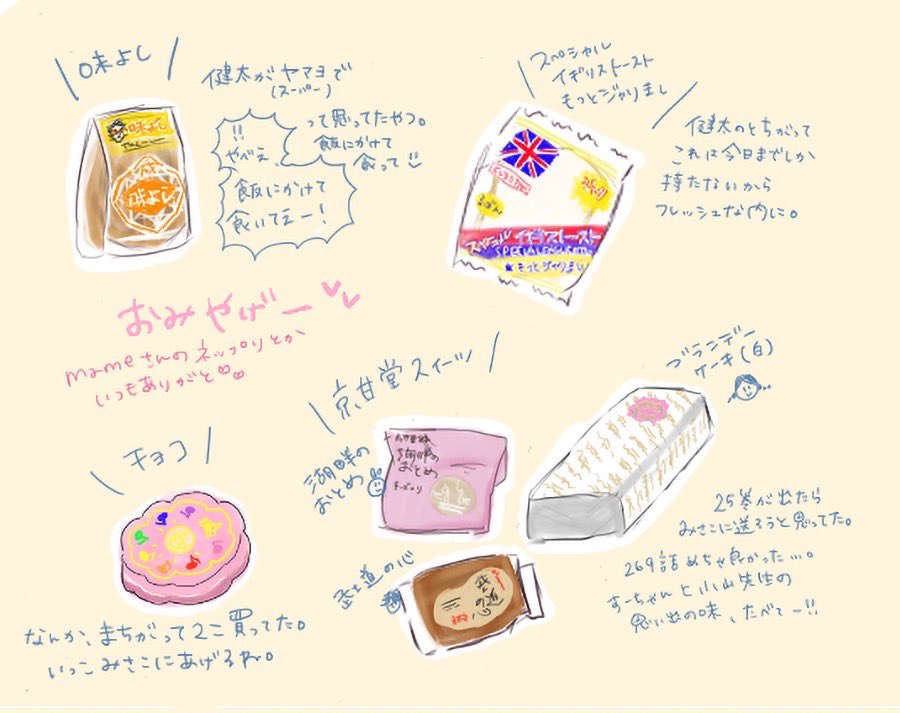 味よし
健太がヤマヨで
(スーパー)
!!
やがえ
って思ってたやつ。
飯にかけて
食って
飯にかけて
食いてえー!
味よし
味よし
スペシャル
イギリストースト
もっとジャリまし
健太のとちがって
これは今日までしか
持たないから
フレッシュな内に。
スペシャル イギリストースト
もっとジャリまし
おみやげー
mameさんのネップリとか
いつもありがと
京甘堂スイーツ
ブランデー
ケーキ(白)
チョコ
湖畔の
おとめ
湖畔の
おとめ
武士道の心
武士道の心
25巻が出たら
みさこに送ろうと思ってた。
269話めちゃ良かった…。
すーちゃんと小山先生の
思い出の味、たべてー!!
なんか、まちがって2こ買ってた。
いっこみさこにあげるね。